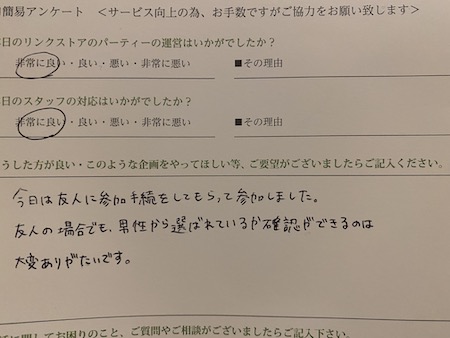 簡易アンケート <サービス向上の為、お手数ですがご協力をお願い致します>
日のリンクストアのパーティーの運営はいかがでしたか？
非常に良い・良い・悪い・非常に悪い ■その理由
日のスタッフの対応はいかがでしたか？
非常に良い・良い・悪い・非常に悪い ■その理由
うした方が良い・このような企画をやってほしい等、ご要望がございましたらご記入ください。
今日は友人に参加手続をしてもらって参加しました。
友人の場合でも、男性から選ばれているか確認ができるのは
大変ありがたいです。
に関してお困りのこと、ご質問やご相談がございましたらご記入下さい。